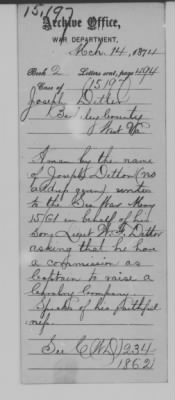 15,197
Archive Office,
WAR DEPARTMENT,
Mch. 14, 1874
Book 2 Letters sent, page 494
Case of (15197)
Joseph Dittor
County
West Va
A man by the name
of Joseph Dittor (no
address given) writes
to the Sec War May
15/61 in behalf of his
son, Lieut Wm F. Dittor
asking that he have
a commission as
Captain to raise a
Cavalry Company.
Speaks of his faithful
See C (WD) 234
1862